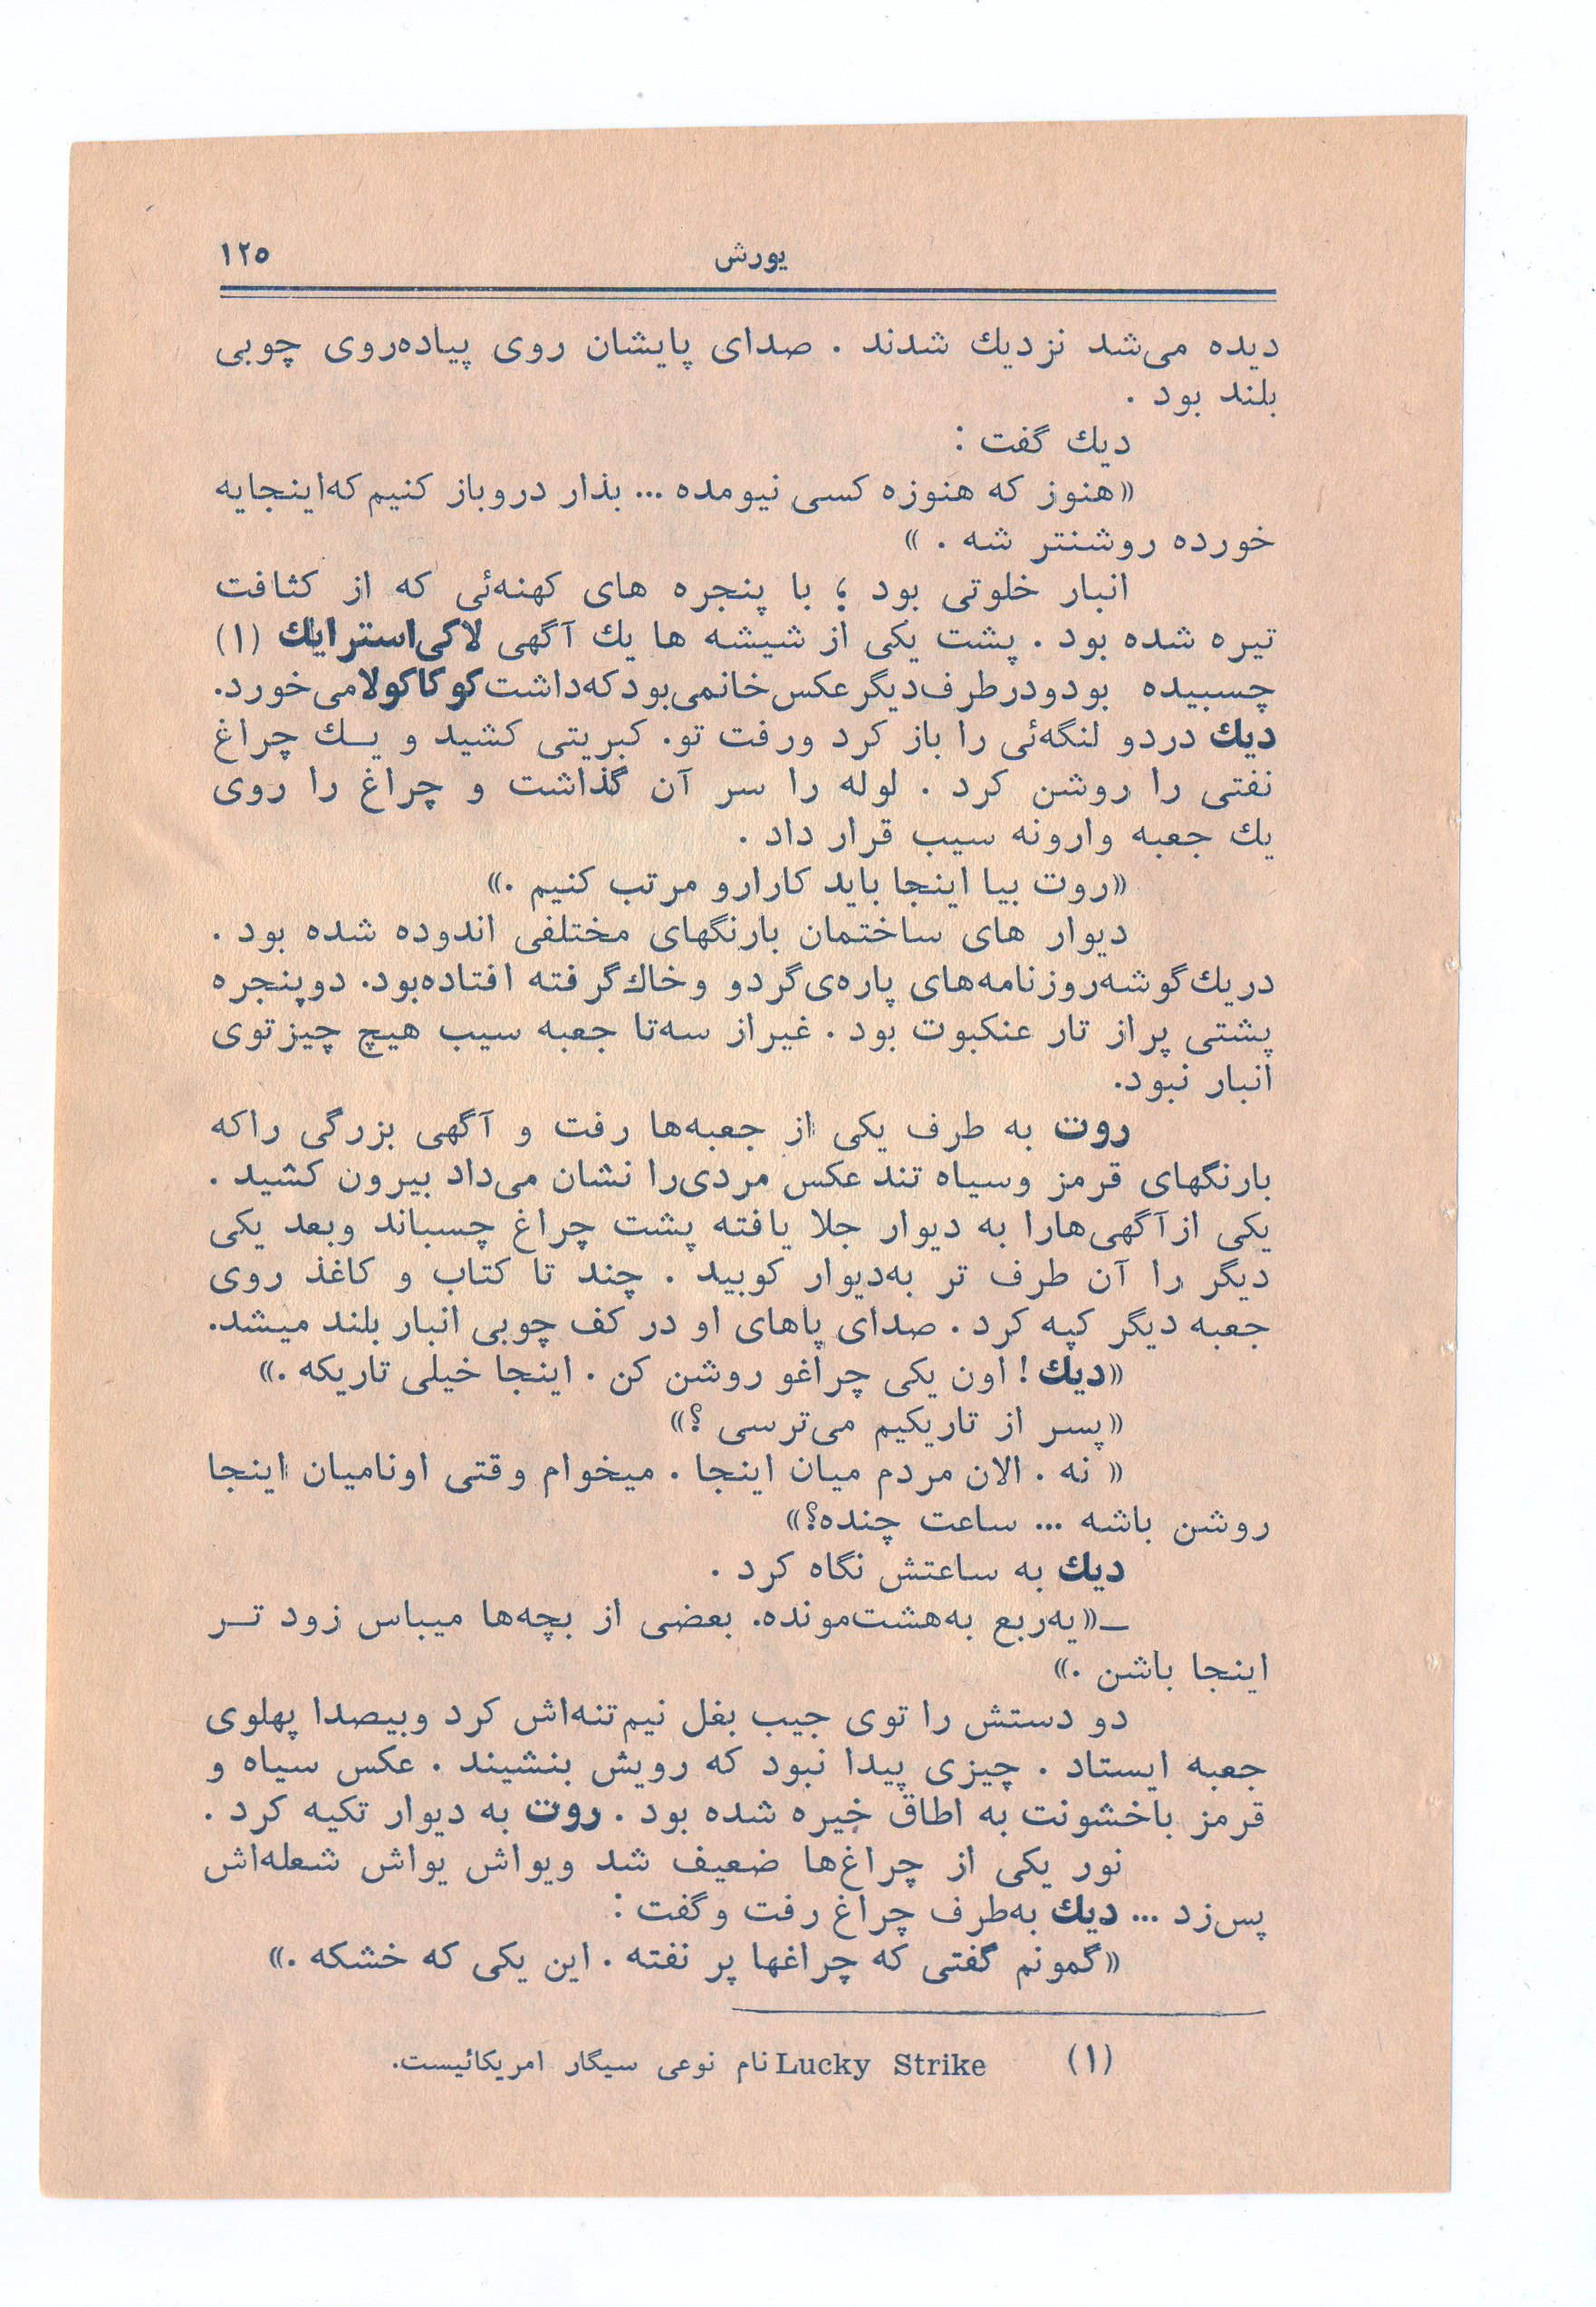 یورش ۱۲۵
دیده می‌شد نزدیك شدند . صدای پایشان روی پیاده‌روی چوبی
بلند بود .
دیك گفت :
«هنوز که هنوزه کسی نیومده ... بذار دروباز کنیم که‌اینجایه
خورده روشنتر شه . »
انبار خلوتی بود ؛ با پنجره های کهنه‌ئی که از کثافت
تیره شده بود . پشت یکی از شیشه ها یك آگهی لاکی‌استرایك (۱)
چسبیده بودودرطرف‌دیگرعکس‌خانمی‌بودکه‌داشت‌کوکاکولامی‌خورد.
دیك دردو لنگه‌ئی را باز کرد ورفت تو. کبریتی کشید و یــك چراغ
نفتی را روشن کرد . لوله را سر آن گذاشت و چراغ را روی
یك جعبه وارونه سیب قرار داد .
«روت بیا اینجا باید کارارو مرتب کنیم .»
دیوار های ساختمان بارنگهای مختلفی اندوده شده بود .
دریك‌گوشه‌روزنامه‌های پاره‌ی‌گردو وخاك‌گرفته افتاده‌بود. دوپنجره
پشتی پراز تار عنکبوت بود . غیراز سه‌تا جعبه سیب هیچ چیزتوی
انبار نبود.
روت به طرف یکی از جعبه‌ها رفت و آگهی بزرگی راکه
بارنگهای قرمز وسیاه تند عکس مردی‌را نشان می‌داد بیرون کشید .
یکی ازآگهی‌هارا به دیوار جلا یافته پشت چراغ چسباند وبعد یکی
دیگر را آن طرف تر به‌دیوار کوبید . چند تا کتاب و کاغذ روی
جعبه دیگر کپه کرد . صدای پاهای او در کف چوبی انبار بلند میشد.
«دیك ! اون یکی چراغو روشن کن . اینجا خیلی تاریکه .»
«پسر از تاریکیم می‌ترسی ؟»
« نه . الان مردم میان اینجا . میخوام وقتی اونامیان اینجا
روشن باشه ... ساعت چنده؟»
دیك به ساعتش نگاه کرد .
ــ«یه‌ربع به‌هشت‌مونده. بعضی از بچه‌ها میباس زود تــر
اینجا باشن .»
دو دستش را توی جیب بغل نیم‌تنه‌اش کرد وبیصدا پهلوی
جعبه ایستاد . چیزی پیدا نبود که رویش بنشیند . عکس سیاه و
قرمز باخشونت به اطاق خیره شده بود . روت به دیوار تکیه کرد .
نور یکی از چراغ‌ها ضعیف شد ویواش یواش شعله‌اش
پس‌زد ... دیك به‌طرف چراغ رفت وگفت :
«گمونم گفتی که چراغها پر نفته . این یکی که خشکه .»
(۱) Lucky Strike نام نوعی سیگار امریکائیست.